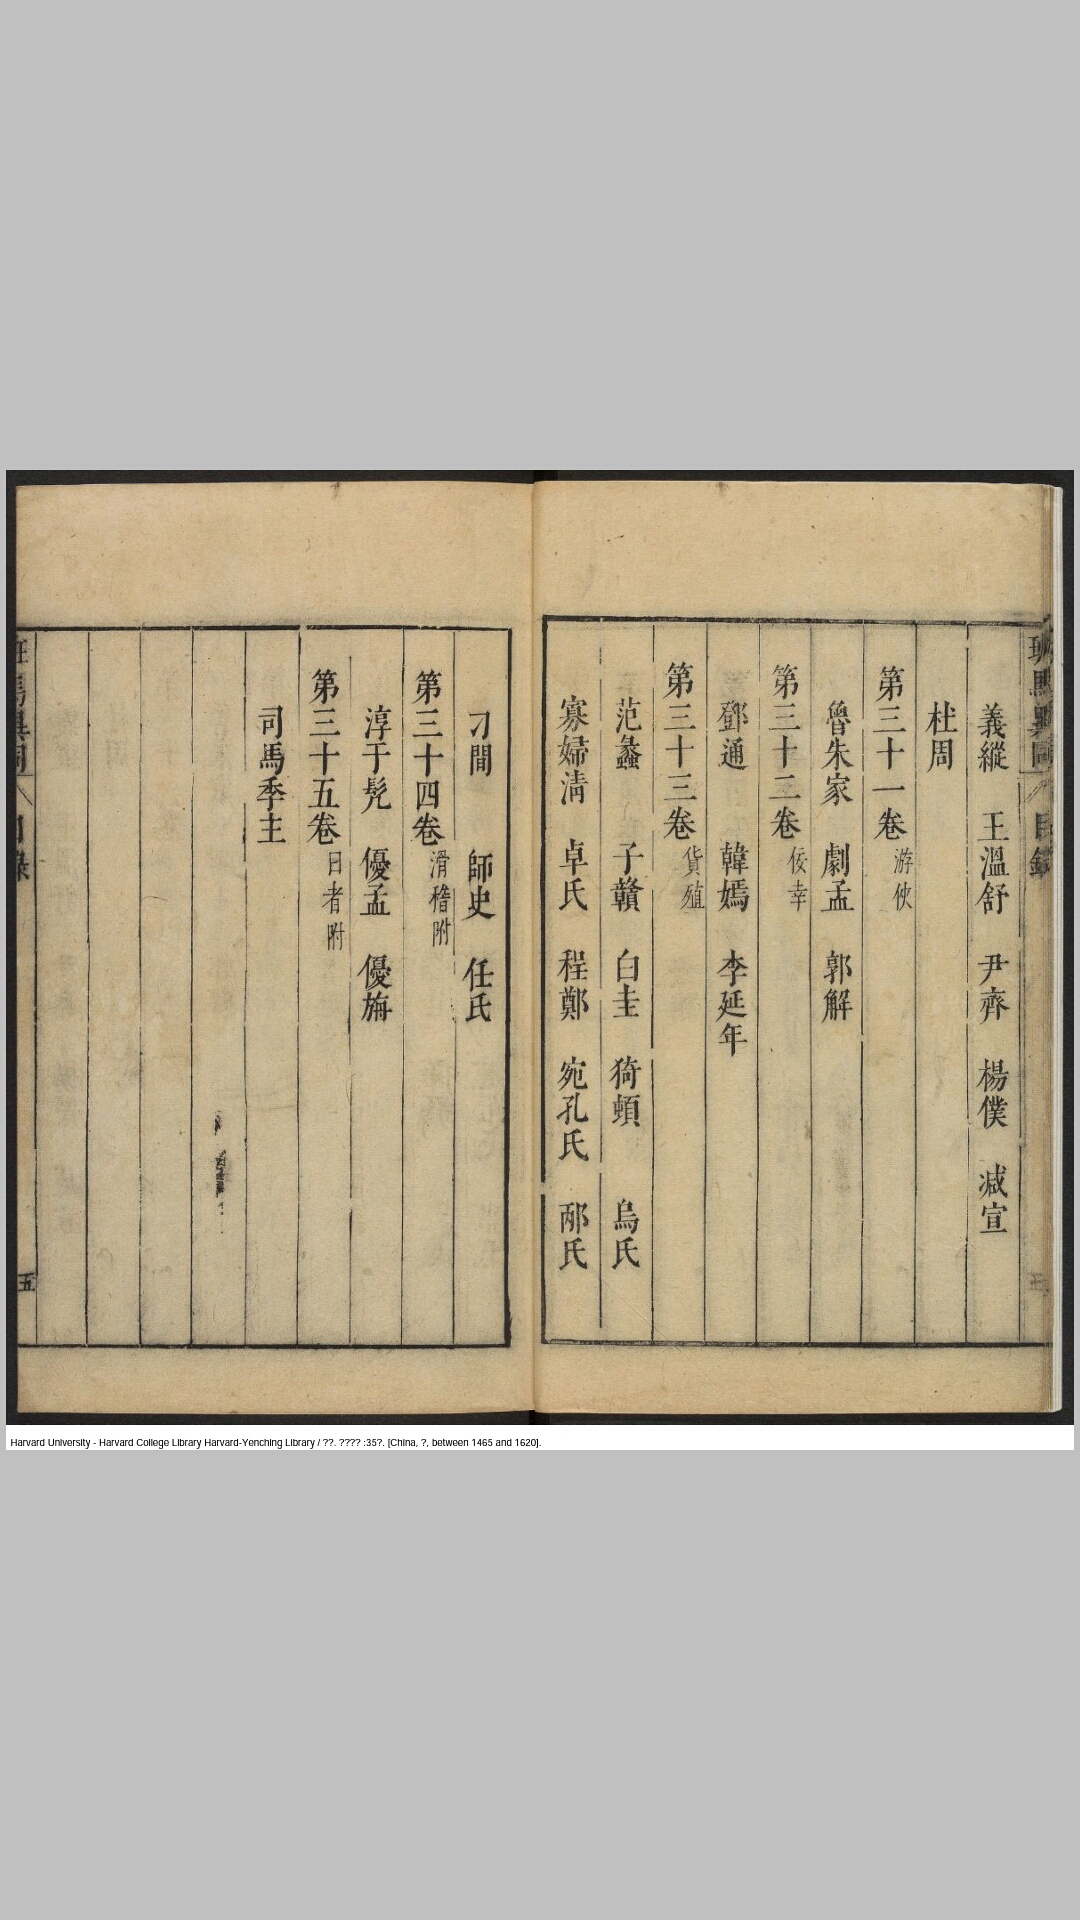 義縱 王溫舒 尹齊 楊僕 減宣
杜周
第三十一卷 游俠
魯朱家 劇孟 郭解
第三十二卷 佞幸
鄧通 韓嫣 李延年
第三十三卷 貨殖
范蠡 子贛 白圭 猗頓 烏氏
寡婦清 卓氏 程鄭 宛孔氏 邴氏
刁間 師史 任氏
第三十四卷 滑稽附
淳于髡 優孟 優旃
第三十五卷 日者附
司馬季主
五
Harvard University - Harvard College Library Harvard-Yenching Library / ??. ???? :35?. [China, ?, between 1465 and 1620].